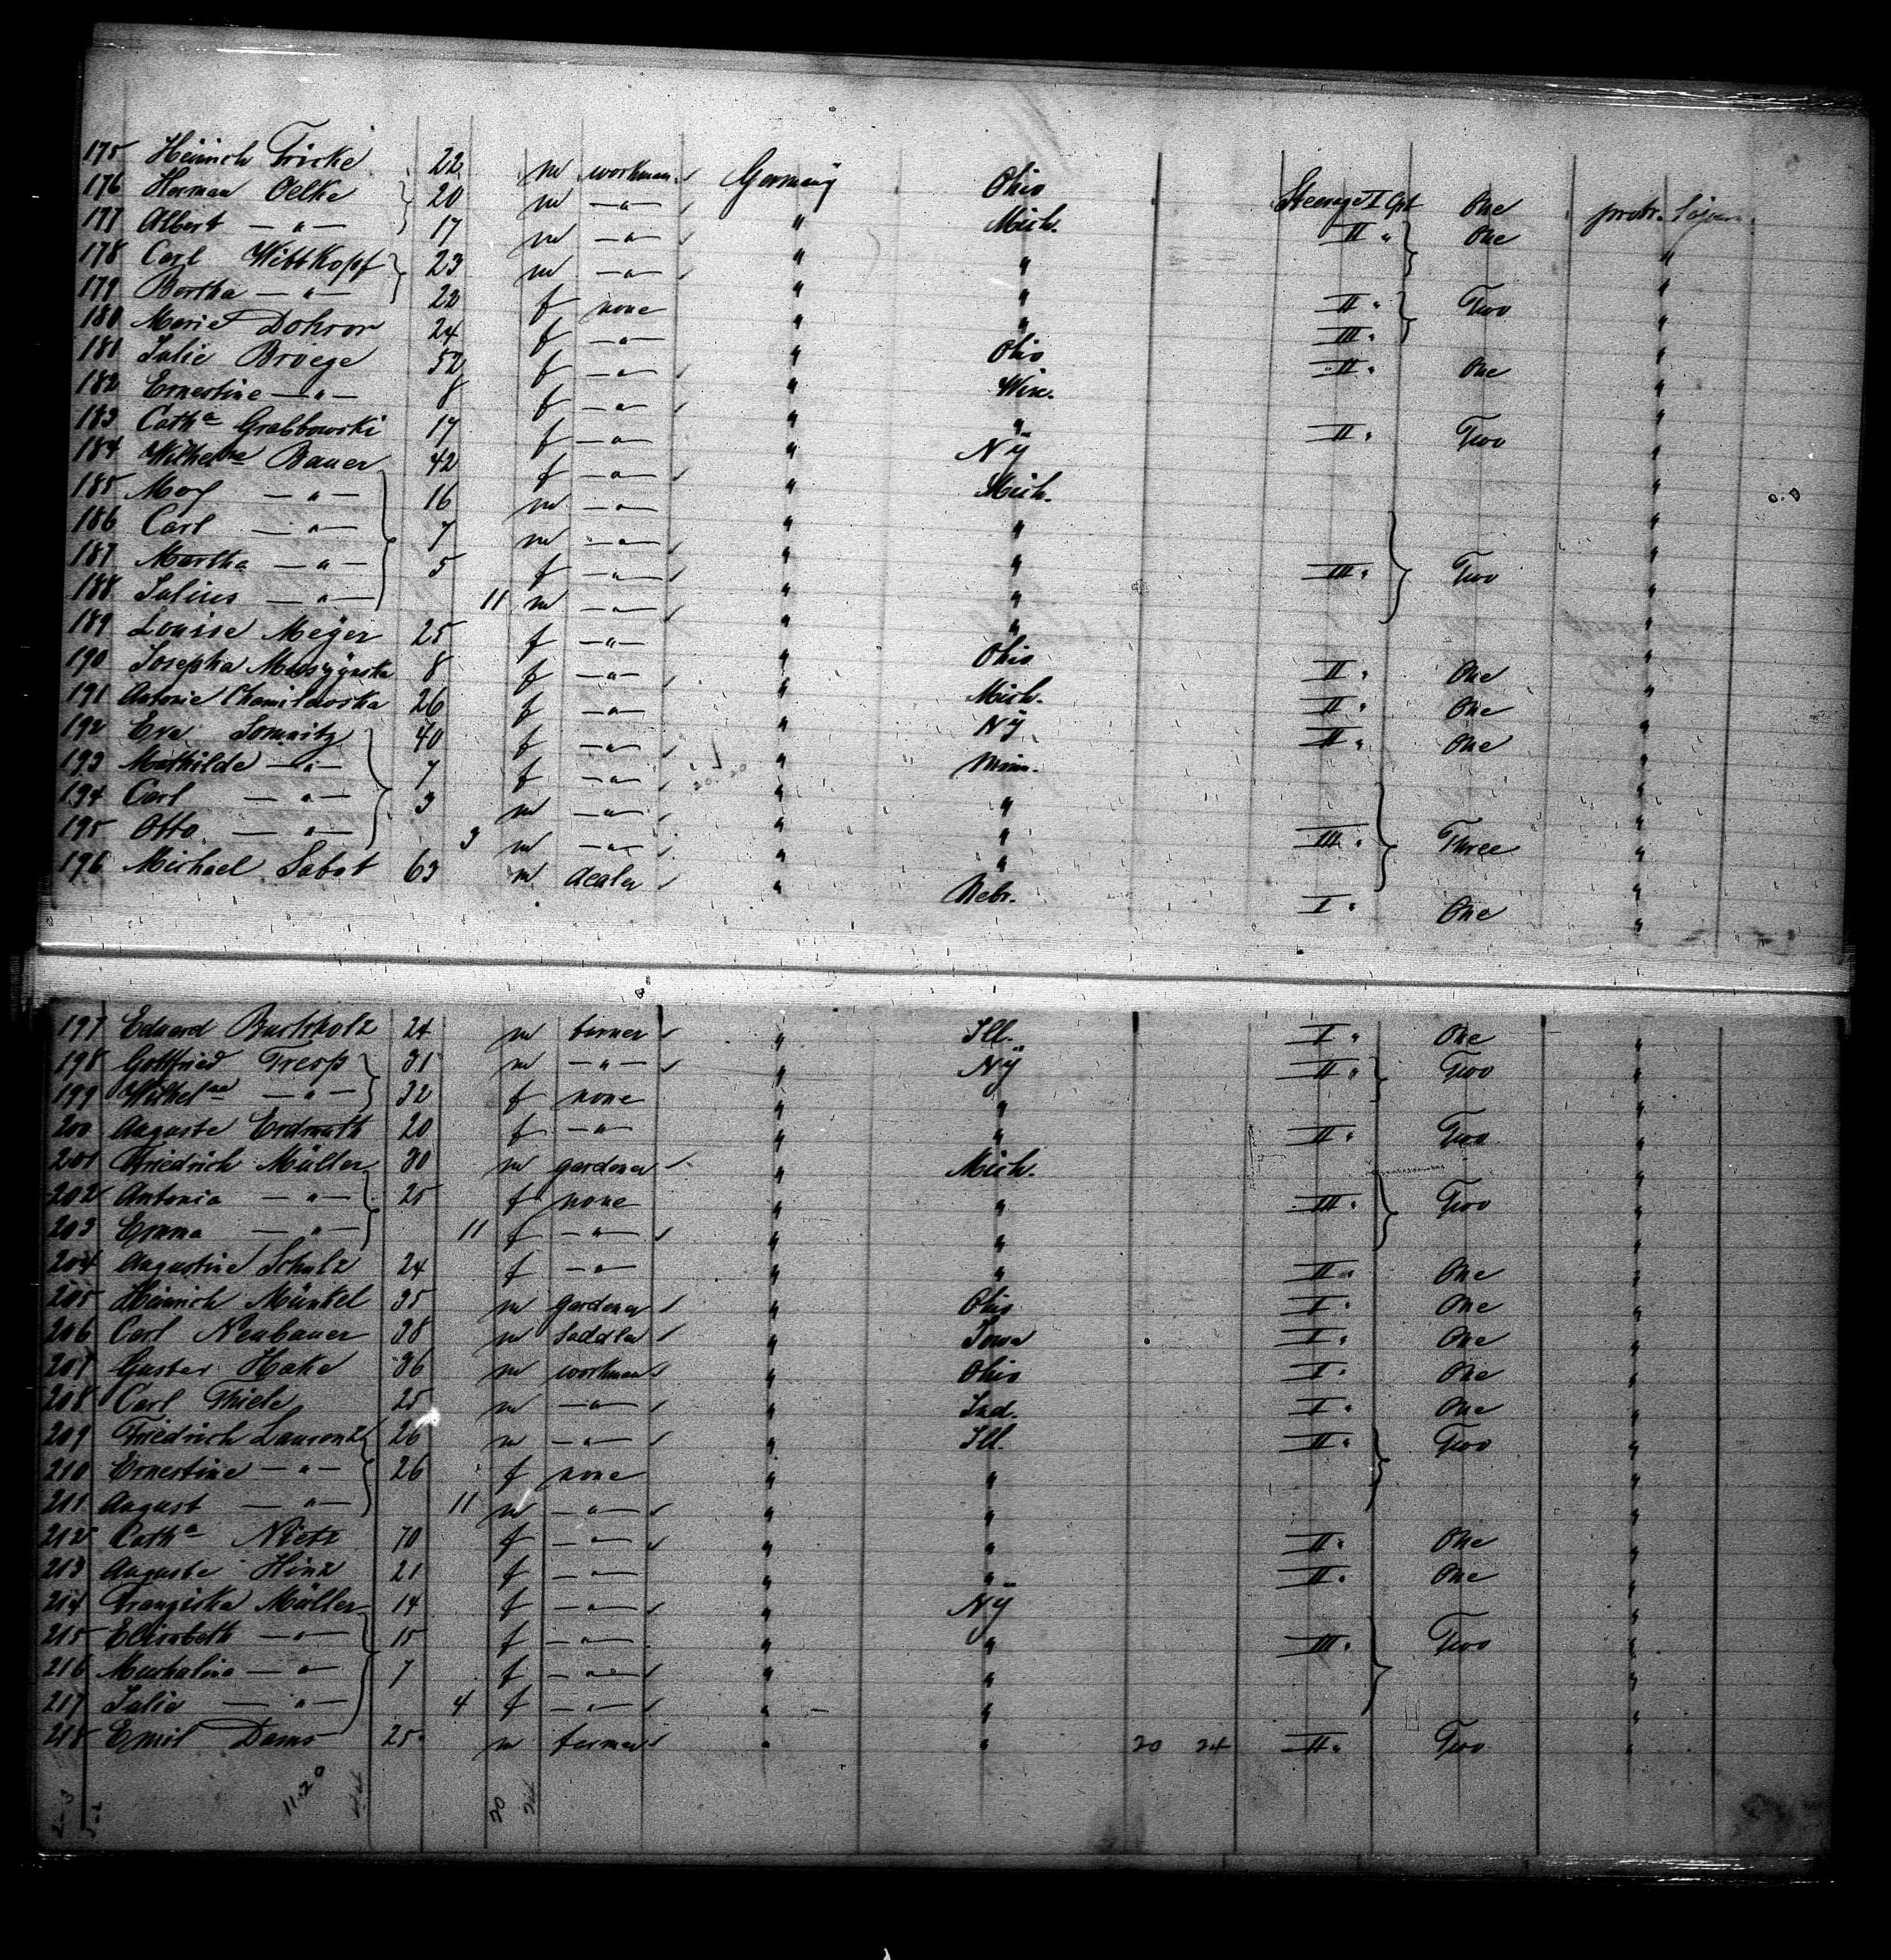 175 Heinrich Fricke 22 m workman Germany Ohio Steerage I Cpt One prot. Sojourn
176 Herman Oelke 20 m —"— " Mich. II " One "
177 Albert —"— 17 m —"— " " "
178 Carl Wittkopf 23 m —"— " " II " Two "
179 Bertha —"— 22 f none " " III " "
180 Marie Dohror 24 f —"— " Ohio II " One "
181 Julie Broege 52 f —"— " Wisc. "
182 Ernestine —"— 8 f —"— " " II " Two "
183 Cathª Grabbowski 17 f —"— " NY "
184 Wilhelne Bauer 42 f —"— " Mich. "
185 Max —"— 16 m —"— " " "
186 Carl —"— 7 m —"— " " III " Two "
187 Martha —"— 5 f —"— " " "
188 Julius —"— 11 m —"— " " "
189 Louise Meyer 25 f —"— " Ohio II " One "
190 Josepha 8 f —"— " Mich. II " One "
191 Antonie Chamilewska 26 f —"— " NY II " One "
192 Eva Somnitz 40 f —"— " Minn. "
193 Mathilde —"— 7 f —"— " " "
194 Carl —"— 3 m —"— " " III " Three "
195 Otto —"— 3 m —"— " " "
196 Michael Sabot 63 m dealer " Nebr. I " One "
197 Eduard Buchholz 24 m farmer " Ill. I " One "
198 Gottfried Tresp 31 m —"— " NY II " Two "
199 Wilhelne —"— 32 f none " " "
200 Auguste Erdmuth 20 f —"— " " II " Two "
201 Friedrich Müller 30 m gardener " Mich. "
202 Antonia —"— 25 f none " " III " Two "
203 Emma —"— 11 f —"— " " "
204 Augustine Schulz 24 f —"— " " II " One "
205 Heinrich Münkel 35 m gardener " Ohio I " One "
206 Carl Neubauer 38 m Saddler " Iowa I " One "
207 Gustav Hake 36 m workman " Ohio I " One "
208 Carl Thiele 25 m —"— " Ind. I " One "
209 Friedrich Laurenz 26 m —"— " Ill. II " Two "
210 Ernestine —"— 26 f none " " "
211 August —"— 11 m —"— " " "
212 Cathª Nietz 70 f —"— " " II " One "
213 Auguste Hinz 21 f —"— " " II " One "
214 Franziska Müller 14 f —"— " NY "
215 Elisabeth —"— 15 f —"— " " III " Two "
216 Michalina —"— 7 f —"— " " "
217 Julie —"— 4 f —"— " " "
218 Emil Dams 25 m farmer " " 20 24 II " Two "
11.20 20